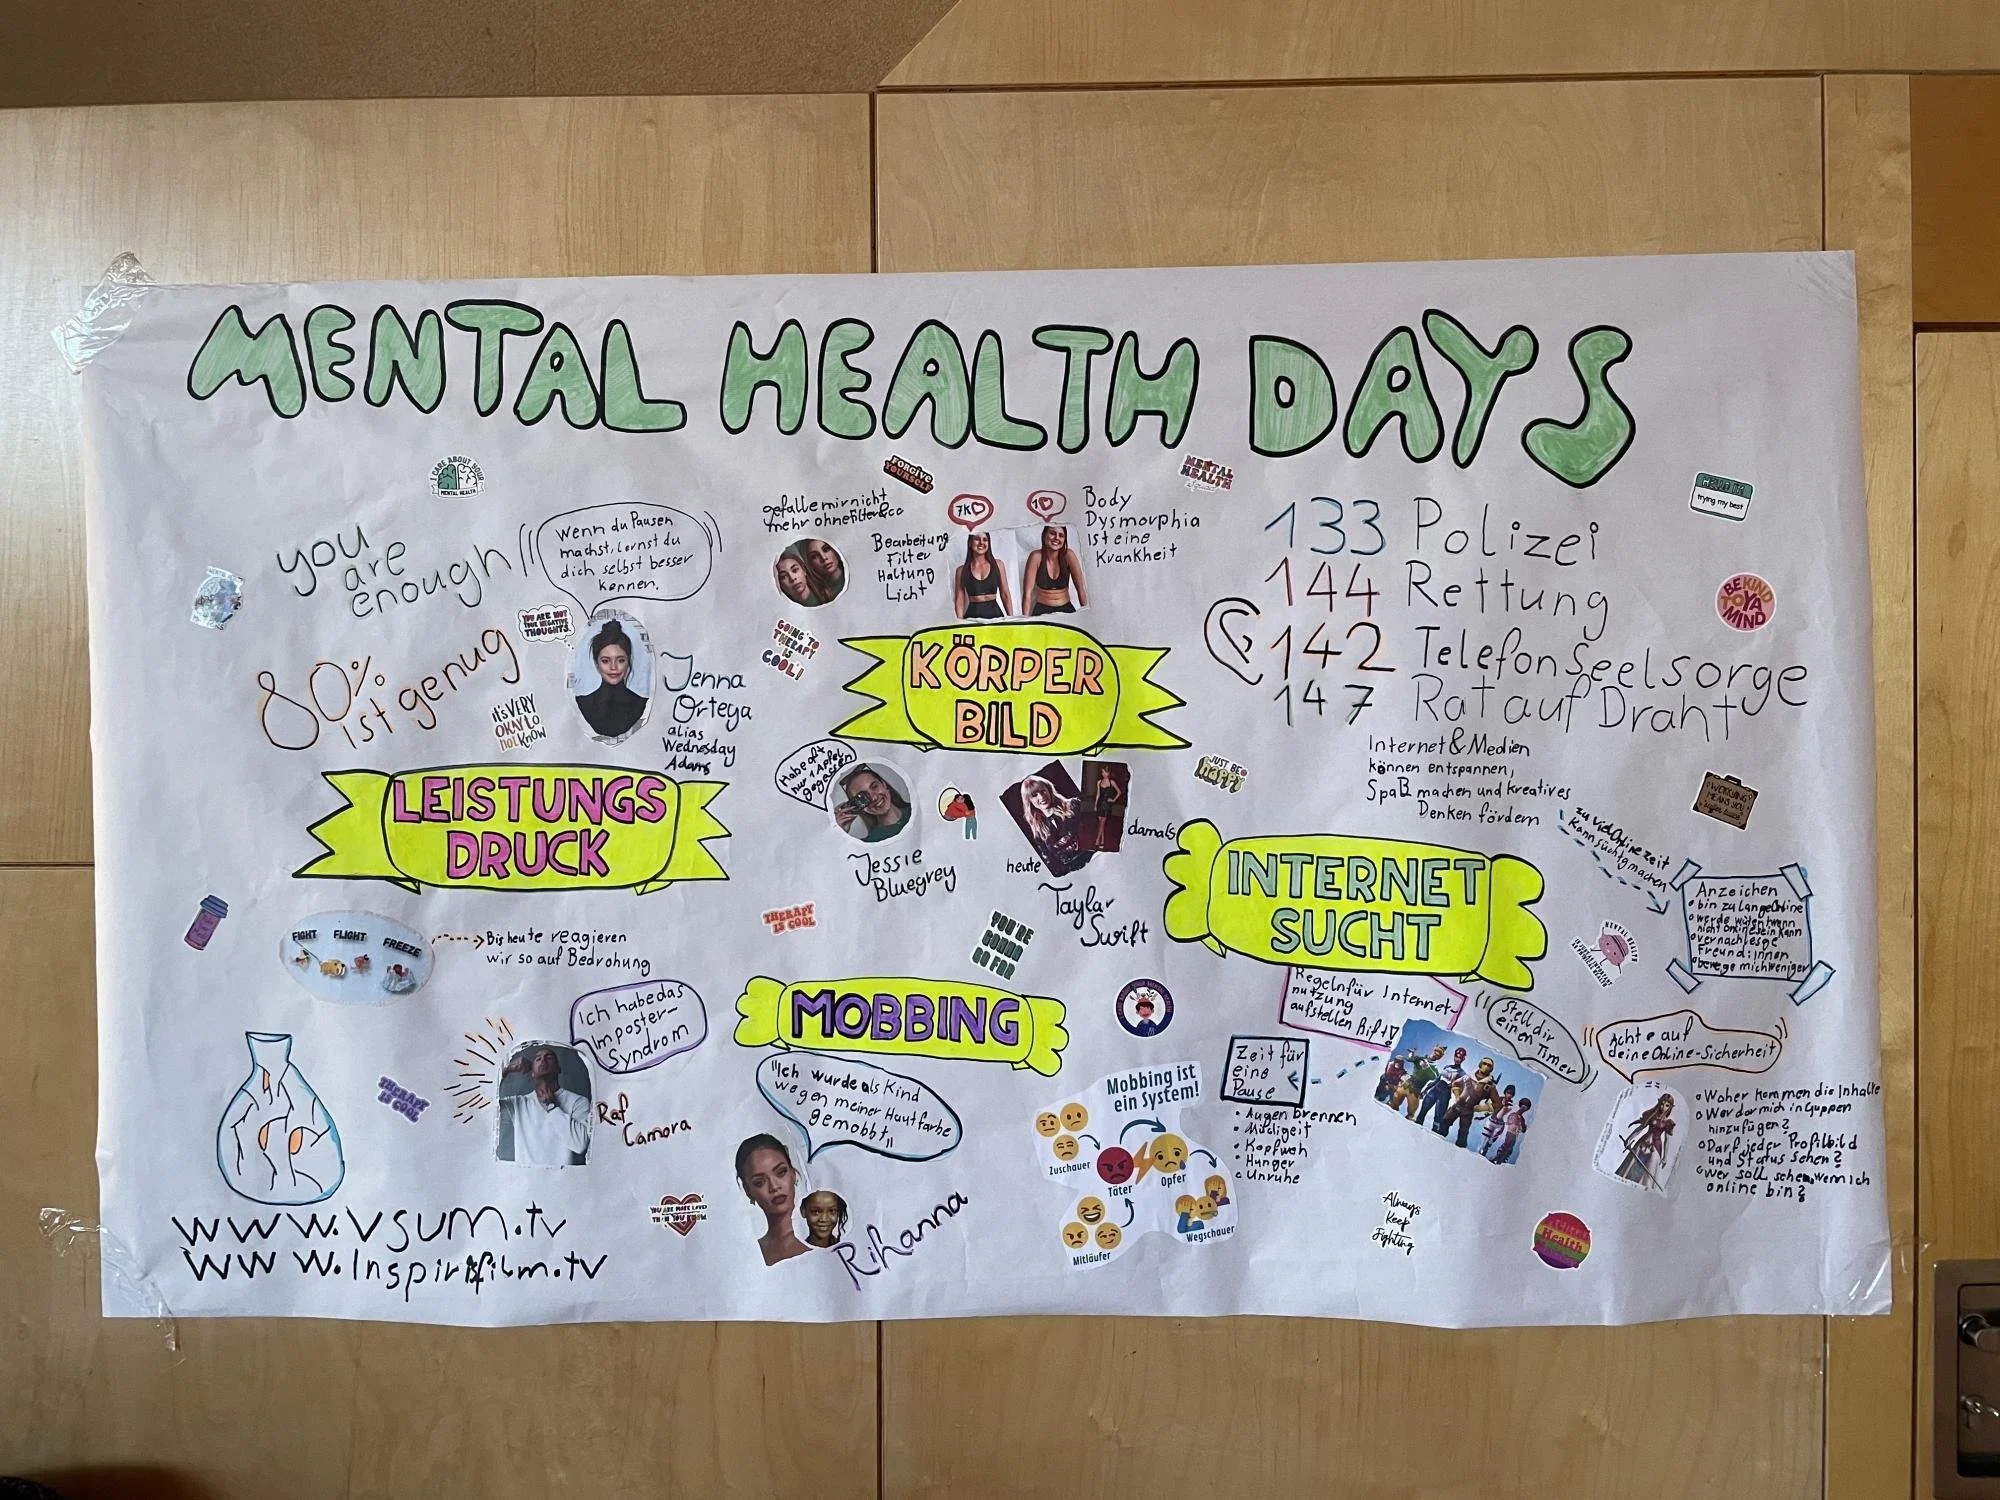 MENTAL HEALTH DAYS
I CARE ABOUT YOUR
MENTAL HEALTH
you
are
enough
Wenn du Pausen
machst, lernst du
dich selbst besser
kennen.
YOU ARE NOT
YOUR NEGATIVE
THOUGHTS.
80%
ist genug
it's VERY
OKAY to
not KNOW
Jenna
Ortega
alias
Wednesday
Adams
LEISTUNGS
DRUCK
FIGHT FLIGHT FREEZE
Bis heute reagieren
wir so auf Bedrohung
Ich habe das
Imposter-
Syndrom
Raf
Camora
THERAPY
IS COOL
www.vsum.tv
www.Inspirisfilm.tv
FORGIVE
YOURSELF
MENTAL
HEALTH
gefalle mir nicht
mehr ohne Filter & co
Bearbeitung
Filter
Haltung
Licht
7K
1
Body
Dysmorphia
ist eine
Krankheit
GOING TO
THERAPY
IS
COOL!
KÖRPER
BILD
Habe oft
nur 1 Apfel
gegessen
Jessie
Bluegrey
heute
damals
Taylor
Swift
JUST BE
happy
THERAPY
IS COOL
YOU'RE
GONNA
GO FAR
MOBBING
"Ich wurde als Kind
wegen meiner Hautfarbe
gemobbt"
Rihanna
YOU ARE MORE LOVED
THAN YOU KNOW
Mobbing ist
ein System!
Zuschauer
Täter
Opfer
Mitläufer
Wegschauer
133 Polizei
144 Rettung
142 Telefonseelsorge
147 Rat auf Draht
trying my best
BE KIND
TO YA
MIND
Internet & Medien
können entspannen,
Spaß machen und kreatives
Denken fördern
zu viel Online zeit
kann süchtig machen
INTERNET
SUCHT
Anzeichen
bin zu lange Online
werde wütend wenn
nicht online sein kann
vernachlesige
Freund:innen
bewege mich weniger
WORRYING
MEANS YOU
MENTAL HEALTH
Regeln für Internet-
nutzung
aufstellen
Stell dir
einen Timer
Achte auf
deine Online-Sicherheit
Zeit für
eine
Pause
Augen brennen
Müdigeit
Kopfweh
Hunger
Unruhe
Woher kommen die Inhalte
Wer dar mich in Guppen
hinzufügen?
Darf jeder Profilbild
und Status sehen?
wer soll sehen, wenn ich
online bin?
Always
Keep
Fighting
Health